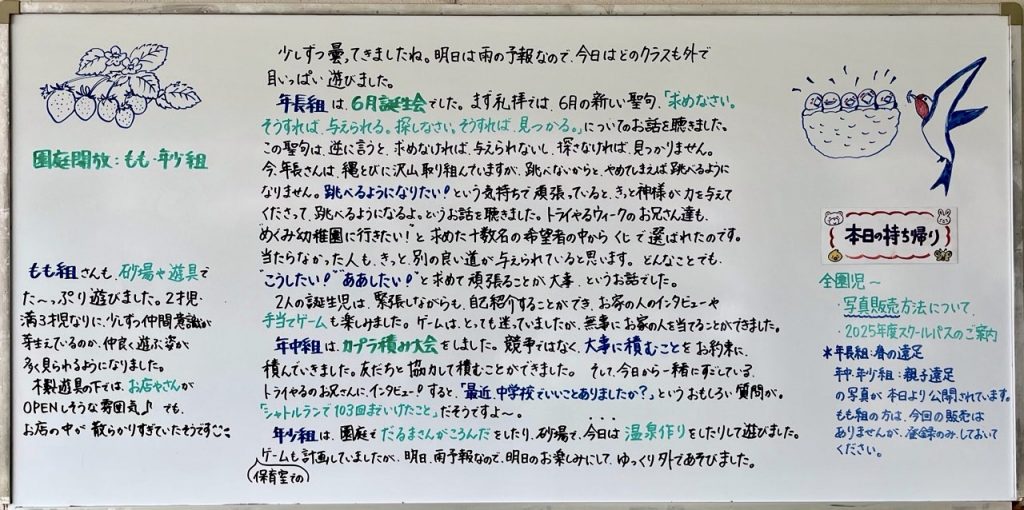 園庭開放：もも・年少組
もも組さんも、砂場や遊具で
た〜っぷり遊びました。2才児・
満3才児なりに、少しずつ仲間意識が
芽生えているのか、仲良く遊ぶ姿が
多く見られるようになりました。
木製遊具の下では、お店やさんが
OPENしそうな雰囲気♪ でも、
お店の中が散らかりすぎていたそうです
少しずつ曇ってきましたね。明日は雨の予報なので、今日はどのクラスも外で
目いっぱい遊びました。
年長組は、6月誕生会でした。まず礼拝では、6月の新しい聖句、「求めなさい。
そうすれば、与えられる。探しなさい。そうすれば、見つかる。」についてのお話を聴きました。
この聖句は、逆に言うと、求めなければ、与えられないし、探さなければ、見つかりません。
今、年長さんは、縄とびに沢山取り組んでいますが、跳べないからと、やめてしまえば跳べるように
なりません。跳べるようになりたい！という気持ちで頑張っていると、きっと神様が力を与えて
くださって、跳べるようになるよ。というお話を聴きました。トライやるウィークのお兄さん達も、
“めぐみ幼稚園に行きたい！”と求めた十数名の希望者の中からくじで選ばれたのです。
当たらなかった人も、きっと、別の良い道が与えられていると思います。どんなことでも、
“こうしたい！”“ああしたい！”と求めて頑張ることが大事、というお話でした。
2人の誕生児は、緊張しながらも、自己紹介することができ、お家の人のインタビューや
手当てゲームも楽しみました。ゲームは、とっても迷っていましたが、無事にお家の人を当てることができました。
年中組は、カプラ積み大会をしました。競争ではなく、大事に積むことをお約束に、
積んでいきました。友だちと協力して積むことができました。そして、今日から一緒にすごしている、
トライやるのお兄さんに、インタビュー！すると、「最近、中学校でいいことありましたか？」というおもしろい質問が。
「シャトルランで103回までいけたこと」だそうですよ〜。
年少組は、園庭でだるまさんがころんだをしたり、砂場で、今日は温泉作りをしたりして遊びました。
ゲームも計画していましたが、明日、雨予報なので、明日のお楽しみにして、ゆっくり外であそびました。
保育室での
本日の持ち帰り
全園児〜
・写真販売方法について
・2025年度スクールパスのご案内
＊年長組：春の遠足
年中・年少組：親子遠足
の写真が本日より公開されています。
もも組の方は、今回の販売は
ありませんが、登録のみ、しておいて
ください。